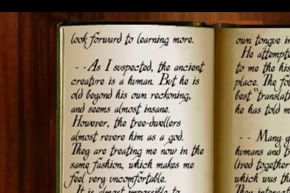 look forward to learning more.
- - As I suspected, the ancient
creature is a human. But he is
old beyond his own reckoning,
and seems almost insane.
However, the tree-dwellers
almost revere him as a god.
They are treating me now in the
same fashion, which makes me
feel very uncomfortable.
It is almost impossible to
own tongue i
He attempte
to me the his
place. The fo
best "translati
he has told m
- - Many y
humans and
lived together
which was th